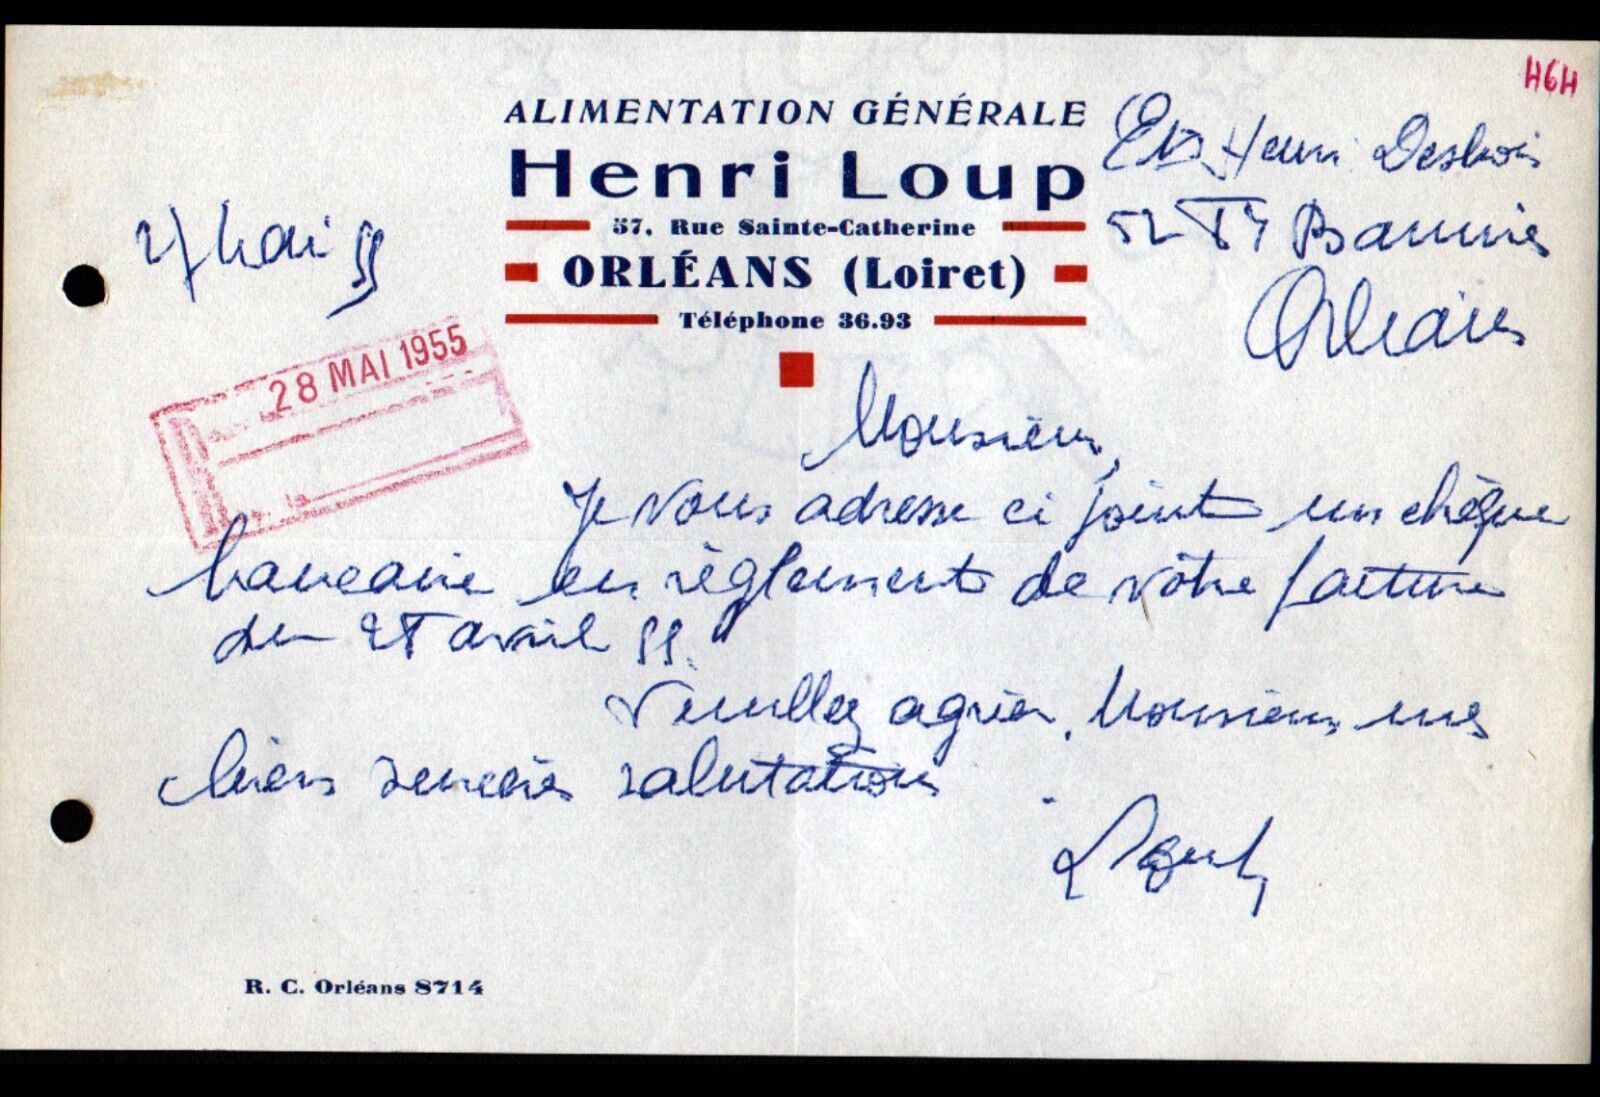 H6H
ALIMENTATION GÉNÉRALE
Henri Loup
57, Rue Sainte-Catherine
ORLÉANS (Loiret)
Téléphone 36.93
Ets Henri Desbois
52 Bannier
Orléans
27 Mai 55
28 MAI 1955
Monsieur,
Je vous adresse ci joint un chèque
bancaire en règlement de vôtre facture
du avril 55.
Veuillez agréer, Monsieur, mes
biens sincères salutations
R. C. Orléans 8714